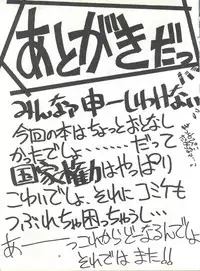 あとがきだっ
みんなァ申ーしわけない
今回の本はちょっとおとなし
かったでしょ……だって
国家権力はやっぱり
こわいでしょ、それにコミケも
つぶれちゃ困っちゃうし…
あーーっこれからどーなるんでしょ
それではまた!!